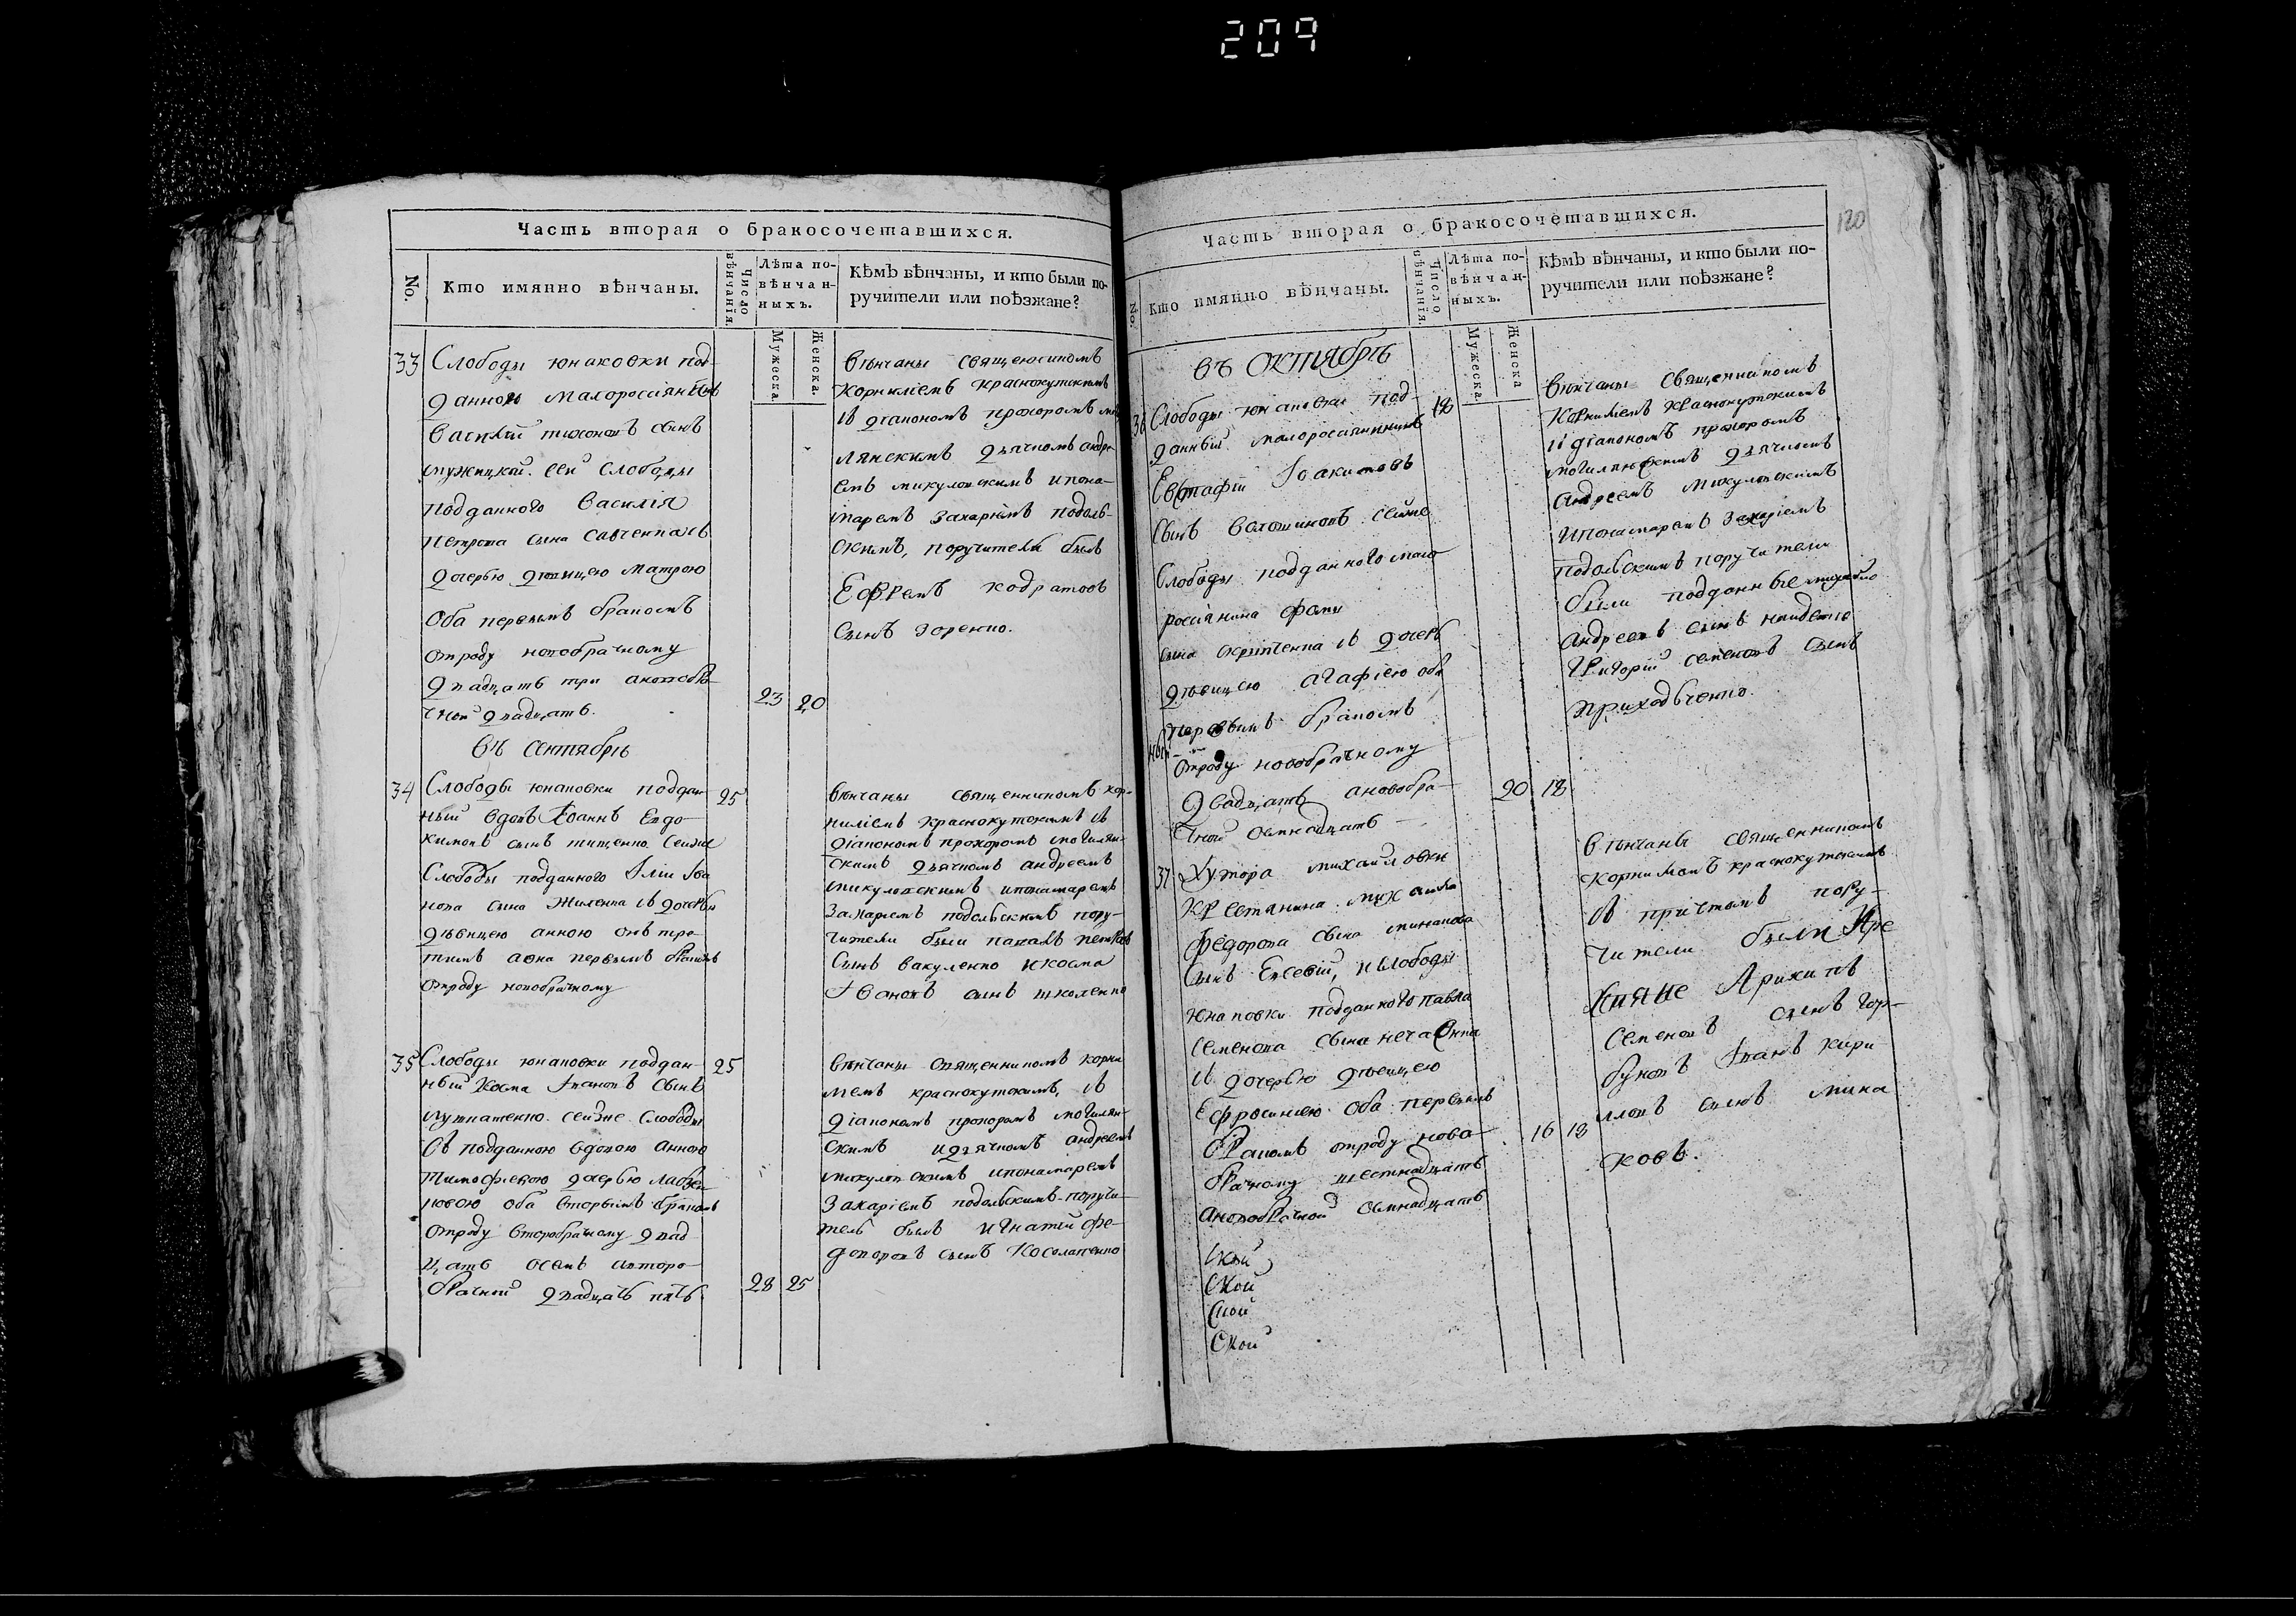 209
Часть вторая о бракосочетавшихся.
No.
Кто имянно вѣнчаны.
Число вѣнчанія.
Лѣта по-
вѣнчан-
ныхъ.
Мужеска.
Женска.
Кѣмъ вѣнчаны, и кто были по-
ручители или поѣзжане?
33
Слободы юнаковки под-
данной малороссіянинъ
Василій сынъ
сей слободы
подданного Василія
Петрова сына
дочерью дѣвицею
оба первымъ бракомъ
отроду новобрачному
двадцать три
чной двадцать.
23 20
вѣнчаны священикомъ
Корниліемъ краснокутскимъ
съ діакономъ прохоромъ моги
лянскимъ дьячкомъ андре
емъ микуловскимъ ипоно-
маремъ захаріемъ подоль-
скимъ, поручители былъ
Ефремъ кодратовъ
сынъ зоренко.
въ сентябрѣ
34
Слободы юнаковки поддан
ный вдовъ Іоаннъ Евдо-
кимовъ сынъ тищенко сейже
слободы подданного Іліи Іва
нова сына Жиленка съ дочерью
дѣвицею анною онъ тре
тимъ аона первымъ бракомъ
отроду новобрачному
25
вѣнчаны священникомъ кор-
ниліемъ краснокутскимъ съ
діакономъ прохоромъ могилян-
скимъ дьячкомъ андреемъ
микуловскимъ ипонамаремъ
Захаріемъ подольскимъ пору-
чители были павалъ петровъ
сынъ вакуленко икосма
Ивановъ сынъ школенко
35
Слободы юнаковки поддан
ный Косма Ивановъ сынъ
сейже слободы
съ подданною вдовою анною
тимофѣевою дочерью
новою оба вторымъ бракомъ
отроду второбрачному двад
цать осемь ивторо
брачной двадцать пять
25
28 25
вѣнчаны священникомъ корни
лемъ краснокутскимъ, съ
діакономъ прохоромъ могилян-
скимъ идьячкомъ андреемъ
микуловскимъ ипонамаремъ
Захаріемъ подольскимъ поручи-
тель былъ игнатій фе-
доровъ сынъ Косолапенко
120
Часть вторая о бракосочетавшихся.
No
Кто имянно вѣнчаны.
Число вѣнчанія.
Лѣта по-
вѣнчан-
ныхъ.
Мужеска.
Женска
Кѣмъ вѣнчаны, и кто были по-
ручители или поѣзжане?
въ октябрѣ
36
Слободы юнаковки под-
данный малороссіянинъ
Евстафій Іоакимовъ
сынъ волошиновъ сейже
слободы подданного мало
россіянина фомы
сына съ дочерью
дѣвицею агафіею оба
первымъ бракомъ
отроду новобрачному
двадцать ановобра-
чной осмнадцать
18
20 18
вѣнчаны священникомъ
Корниліемъ краснокутскимъ
и діакономъ прохоромъ
могилянскимъ дьячкомъ
Андреемъ микуловскимъ
ипонамаремъ Захаріемъ
подольскимъ поручители
были подданные
андреевъ сынъ
Григорій семеновъ сынъ
приходченко.
37
Хутора михайловки
крестянина михаила
федорова сына минакова
сынъ Евсевій, ислободы
юнаковки подданного павла
семенова сына
съ дочерью дѣвицею
Ефросиніею оба первымъ
бракомъ отроду ново-
брачному шестнадцать
ановобрачной осмнадцать
16 18
вѣнчаны священникомъ
корниліемъ краснокутскимъ
съ притчомъ пору-
чители были кре
стяне Архипъ
семеновъ сынъ гор-
буновъ Іванъ кири
лловъ сынъ мина
ковъ.
ской
ской
ской
ской